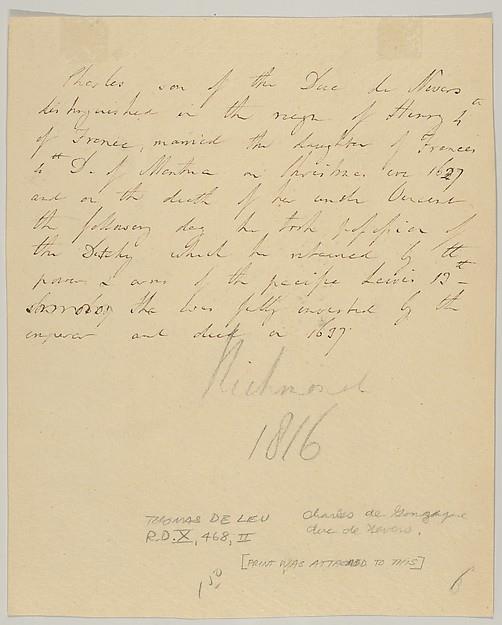 Charles son of the Duc de Nevers
distinguished in the reign of Henry 4th
of France, married the daughter of Francis
4th D. of Mantua on Christmas eve 1627
and on the death of her uncle Vincent
the following day he took possession of
the Dutchy which he retained by the
powers & arms of the pacific Lewis 13th –
he was fully invested by the
emperor and died in 1637
Richmond
1816
THOMAS DE LEU
R.D. X, 468, II
Charles de Gonzague
duc de Nevers.
[PRINT WAS ATTACHED TO THIS]
1 50
6